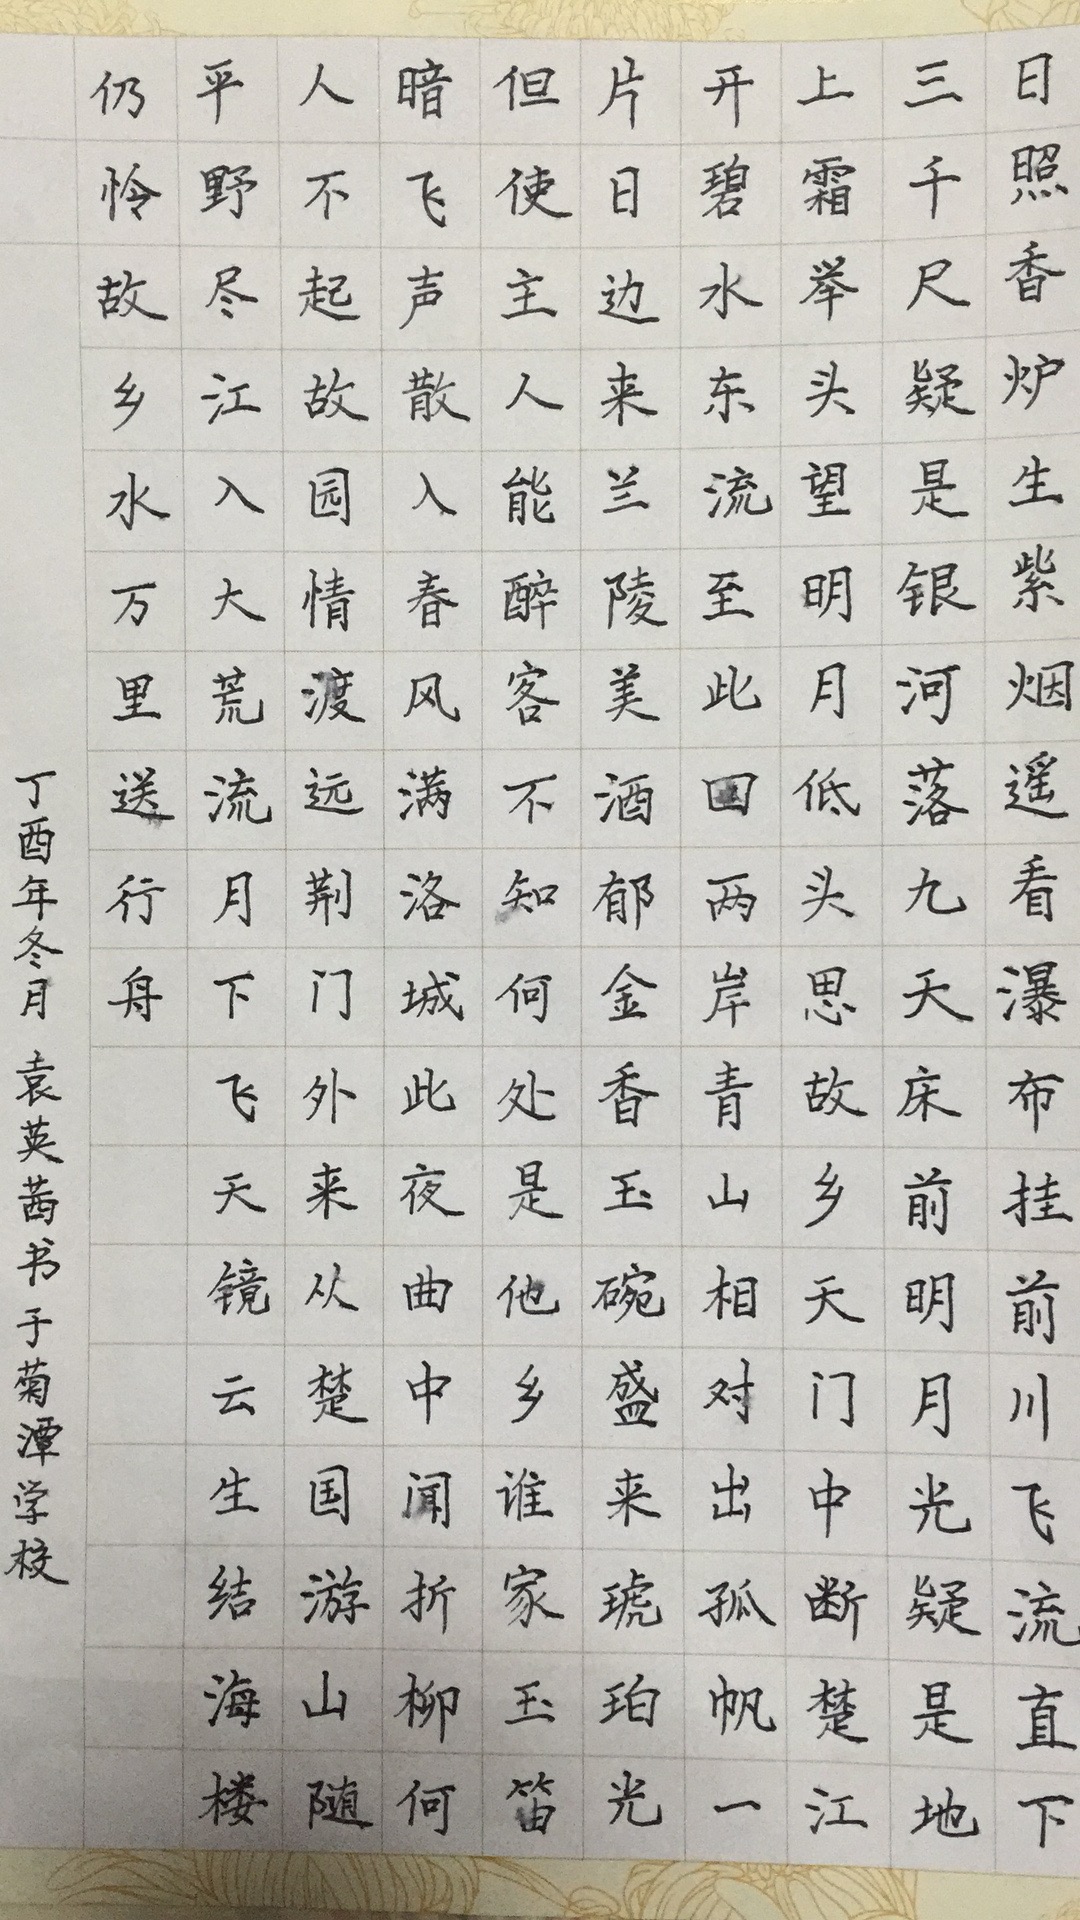 日照香炉生紫烟遥看瀑布挂前川飞流直下
三千尺疑是银河落九天床前明月光疑是地
上霜举头望明月低头思故乡天门中断楚江
开碧水东流至此回两岸青山相对出孤帆一
片日边来兰陵美酒郁金香玉碗盛来琥珀光
但使主人能醉客不知何处是他乡谁家玉笛
暗飞声散入春风满洛城此夜曲中闻折柳何
人不起故园情渡远荆门外来从楚国游山随
平野尽江入大荒流月下飞天镜云生结海楼
仍怜故乡水万里送行舟
丁酉年冬月 袁英茜书于菊潭学校